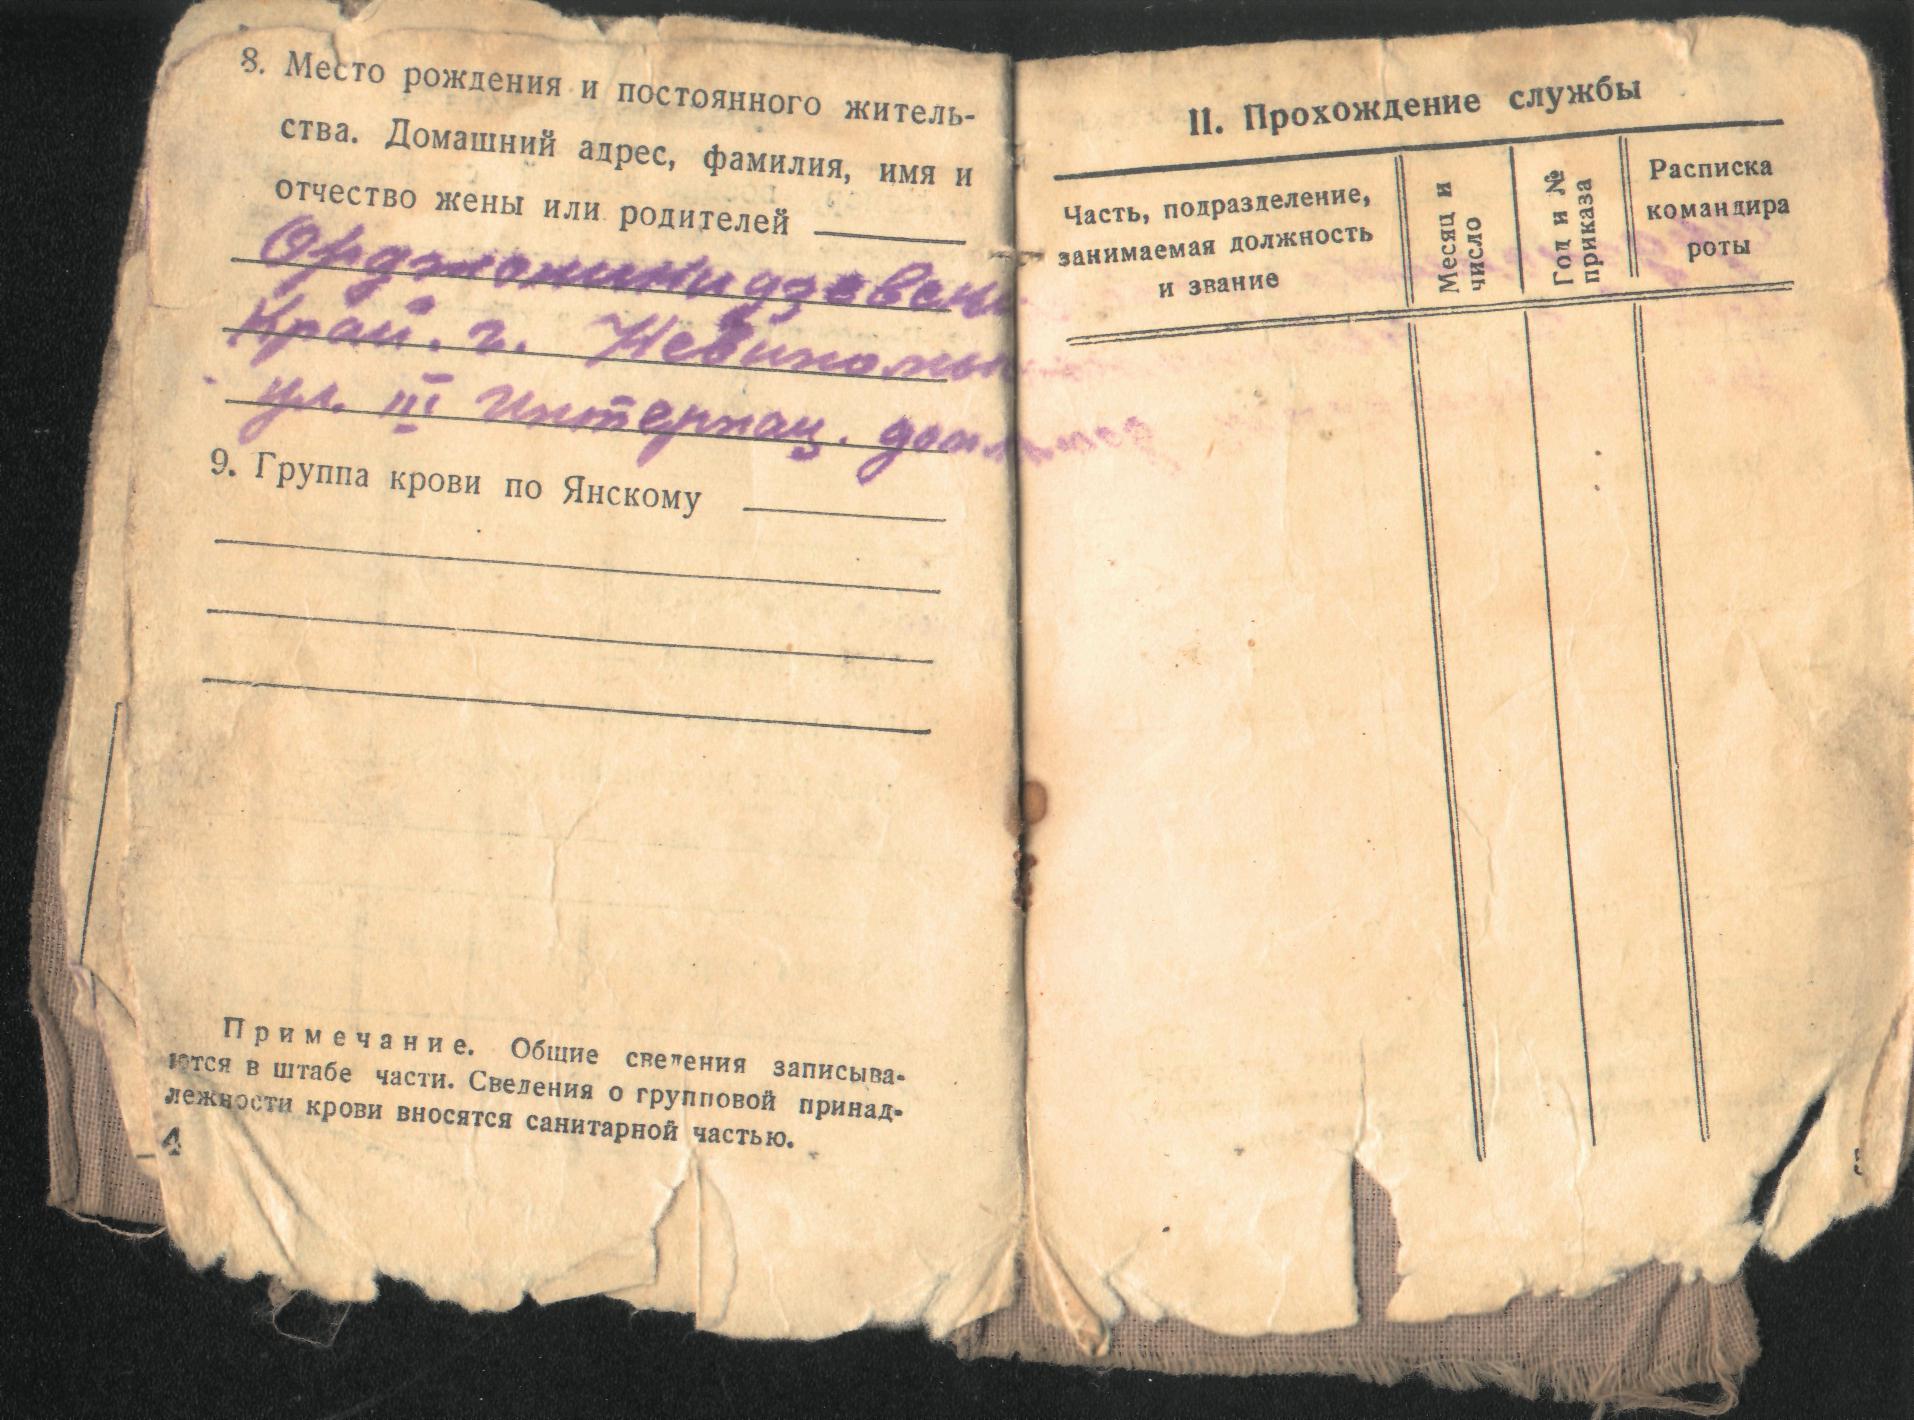 8. Место рождения и постоянного житель-
ства. Домашний адрес, фамилия, имя и
отчество жены или родителей
Орджоникидзевск
Край. г. Невиномы
ул. III Интернац. дом
9. Группа крови по Янскому
Примечание. Общие сведения записыва-
ются в штабе части. Сведения о групповой принад-
лежности крови вносятся санитарной частью.
4
II. Прохождение службы
Часть, подразделение,
занимаемая должность
и звание
Месяц и
число
Год и №
приказа
Расписка
командира
роты